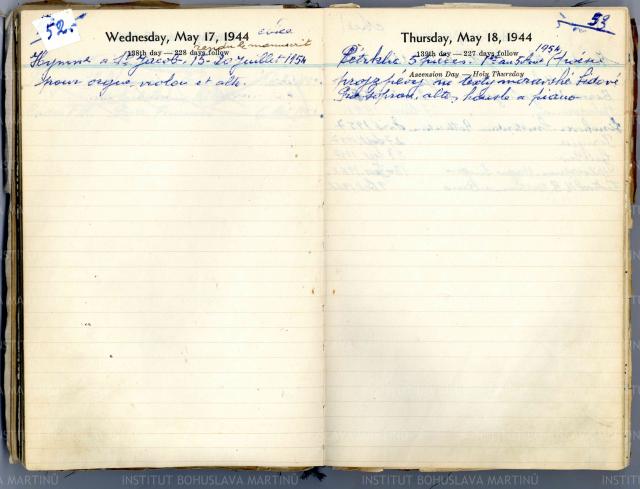 52.
Wednesday, May 17, 1944
rendu le manuscrit
138th day — 228 days follow
Hymne à St. Jacob. 15-20 Juillet 1954
pour orgue, violon et alto.
53
Thursday, May 18, 1944
1954
139th day — 227 days follow
Petrklíč 5 pièces.
Ascension Day — Holy Thursday
pro zpěvů na texty moravské lidové
soprán, alto, housle a piano
INSTITUT BOHUSLAVA MARTINŮ